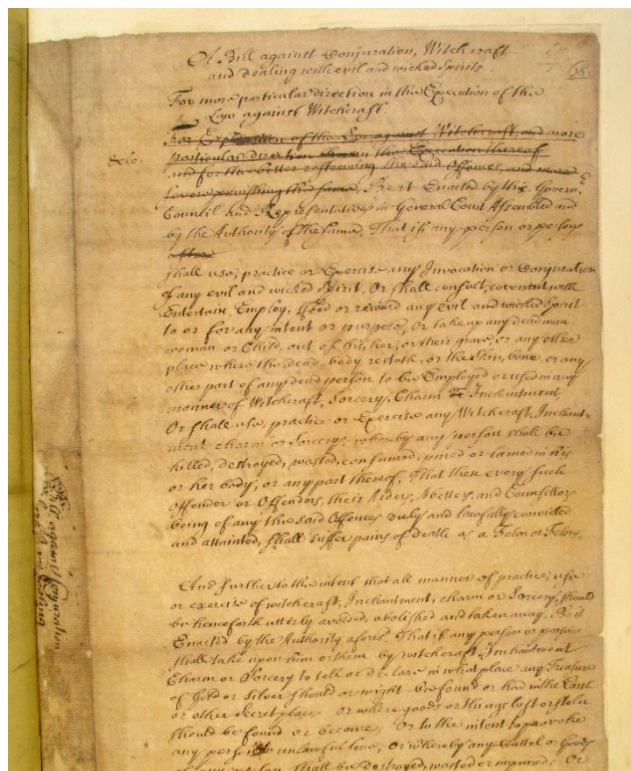 A Bill against Conjuration, Witchcraft
and dealing with evil and wicked Spirits.
For more particular direction in the Execution of the
Law against Witchcraft
For Explanation of the Law against Witchcraft, and more
particular direction therein the Execution thereof
and for the better restraining the said Offences, and more
Severe punishing the same, Be it Enacted by the Governr.
Council and Representatives in General Court Assembled and
by the Authority of the same, That if any person or persons
after
shall use, practice or Exercise any Invocation or Conjuration
of any evil and wicked Spirit, Or shall consult, covenant with
Entertain, Employ, ffeed or reward any evil and wicked Spirit
to or for any intent or purpose, Or take up any dead man
woman or Child, out of his, her, or their grave, or any other
place where the dead body resteth, or the Skin, bone, or any
other part of any dead person to be Employed or used in any
manner of Witchcraft, Sorcery, Charm or Inchantment,
Or shall use, practice or Exercise any Witchcraft, Inchant-
ment charm or Sorcery, whereby any person shall be
killed, destroyed, wasted, consumed, pined or lamed in his
or her body, or any part thereof, That then every such
Offender or Offendors, their Aiders, Abettors, and Counsellors
being of any the said Offences duly and lawfully convicted
and attainted, shall suffer pains of death as a Felon or Felons.
And further to the intent that all manner of practice, use
or exercise of witchcraft, Inchantment, charm or Sorcery, should
be henceforth utterly avoided, abolished and taken away. Be it
Enacted by the Authority aforesd. That if any person or persons
shall take upon him or them by witchcraft, Inchantment
Charm or Sorcery to tell or declare in what place any Treasure
of Gold or Silver should or might be found or had in the Earth
or other Secret place Or where goods or things lost or stolen
should be found or become; Or to the intent to provoke
any person to unlawful love, Or whereby any Cattel or Goods
of any person shall be destroyed, wasted or impaired; Or